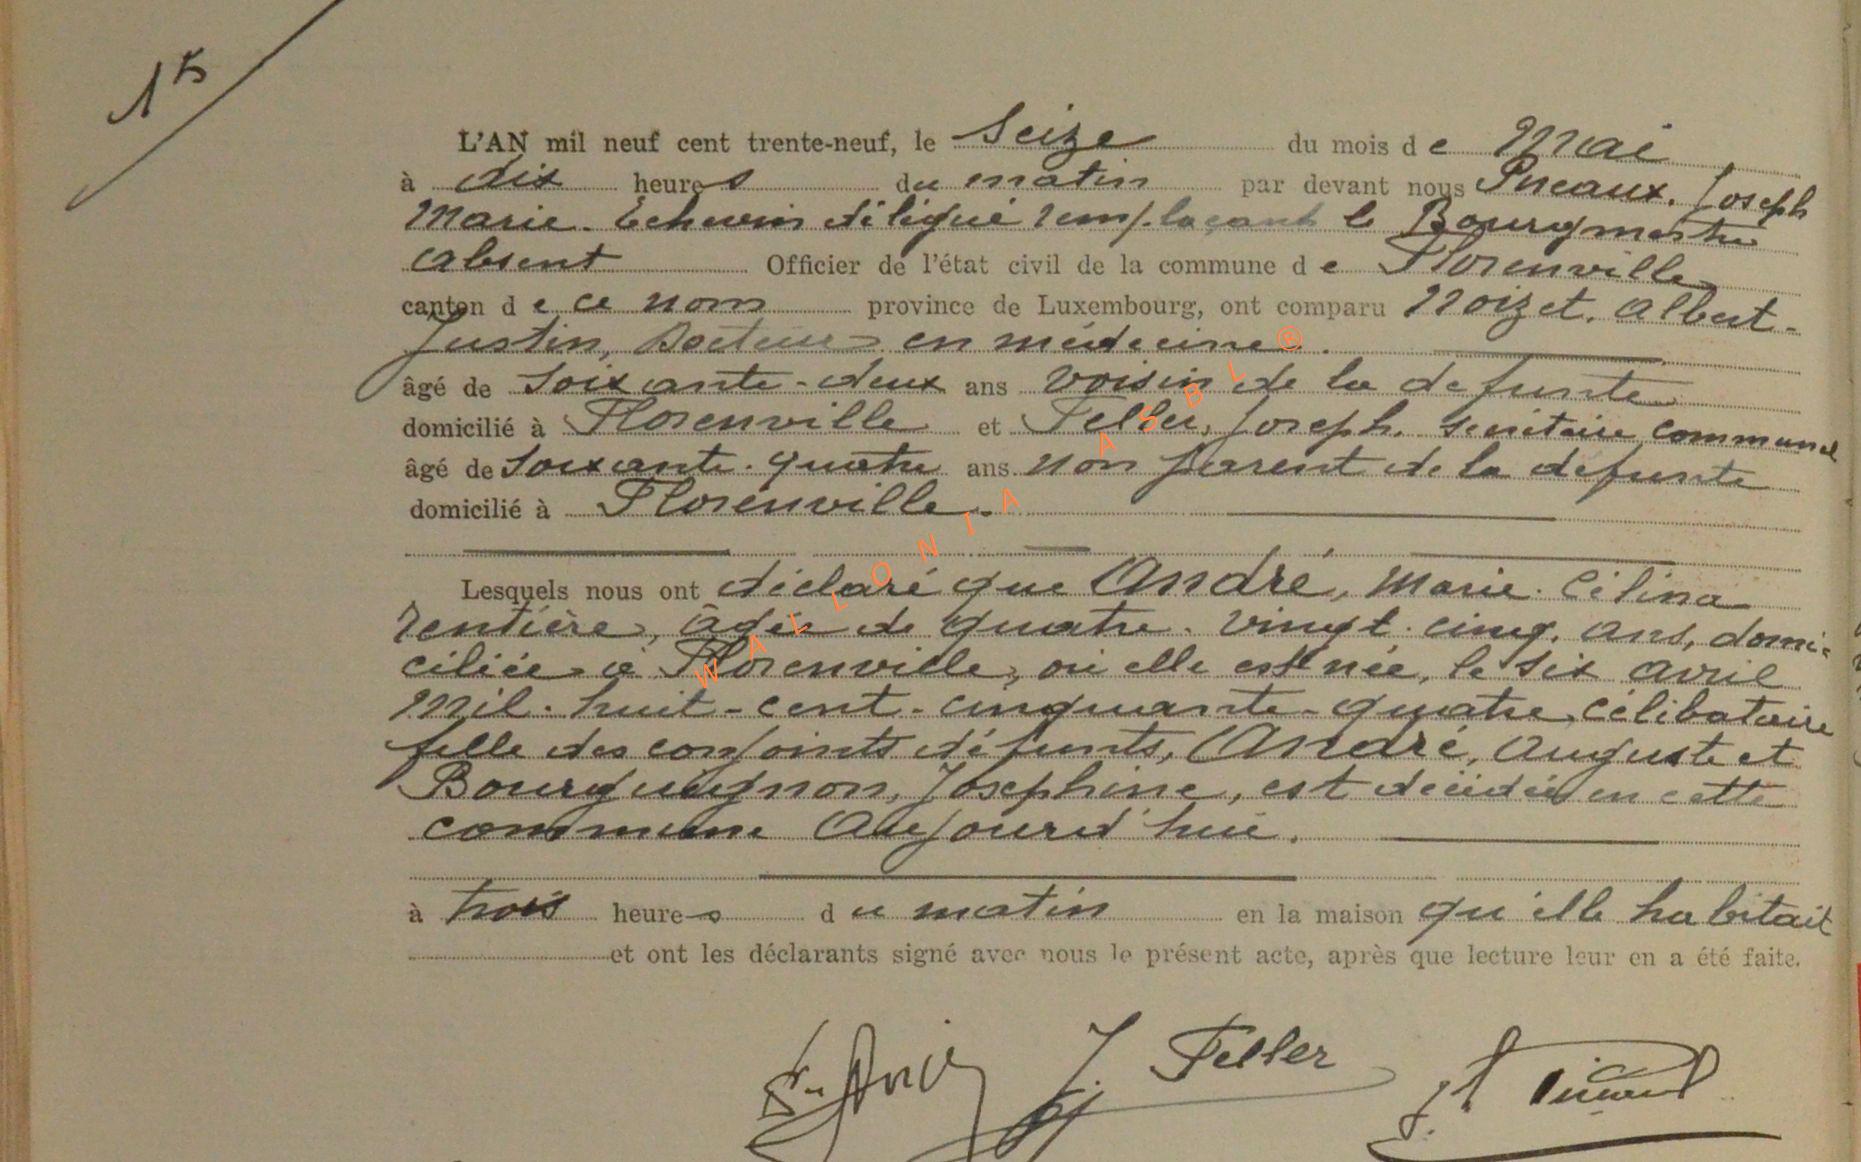 15
L'AN mil neuf cent trente-neuf, le Seize du mois de Mai
à dix heures du matin par devant nous Pneaux, Joseph
Marie. Echevin délégué remplaçant le Bourgmestre
absent Officier de l'état civil de la commune de Florenville
canton de ce nom province de Luxembourg, ont comparu Noizet, Albert-
Justin, Docteur en médecine.
âgé de soixante-deux ans voisin de la défunte
domicilié à Florenville et Feller, Joseph, secrétaire communal
âgé de soixante-quatre ans non parent de la défunte
domicilié à Florenville.
Lesquels nous ont déclaré que André, Marie. Célina
rentière, âgée de quatre-vingt-cinq ans, domi-
ciliée à Florenville, où elle est née, le six avril
mil-huit-cent-cinquante-quatre, célibataire
fille des conjoints défunts, André, Auguste et
Bourguignon, Joséphine, est décédée en cette
commune aujourd'hui.
à trois heures du matin en la maison qu'elle habitait
et ont les déclarants signé avec nous le présent acte, après que lecture leur en a été faite.
J. Feller
WALLONIA ASBL ®